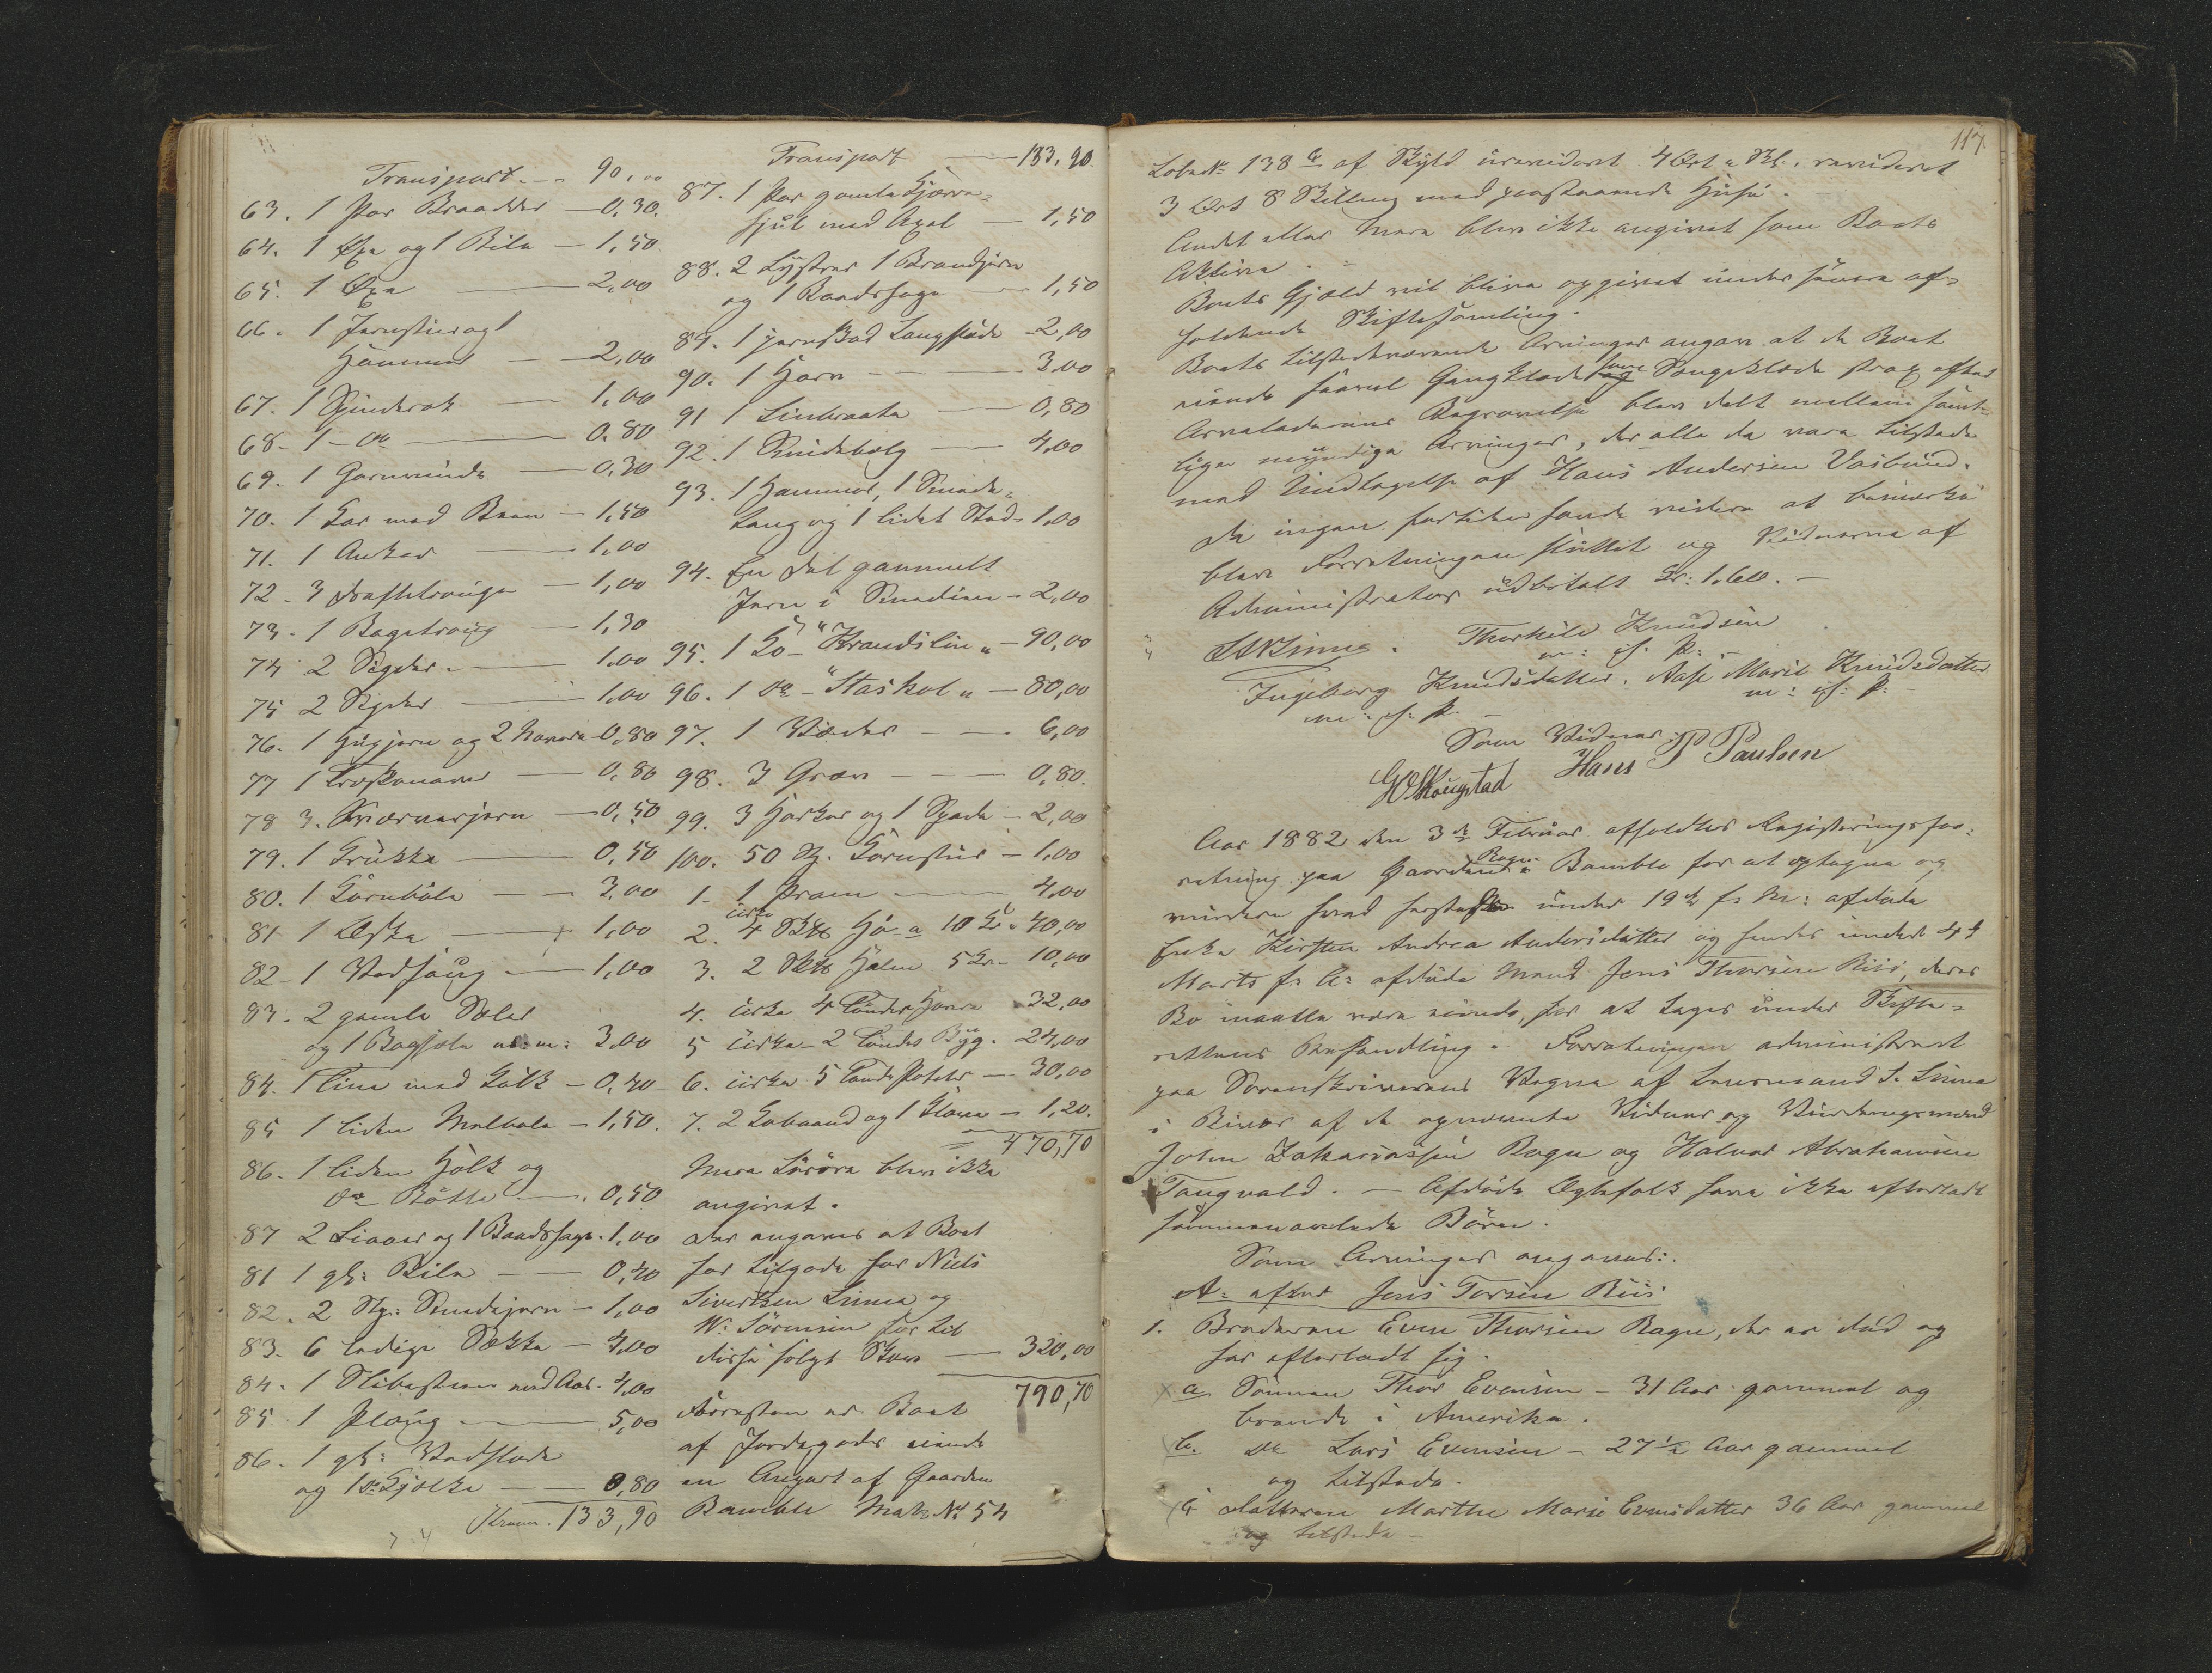 Transport. — 90,00
63. 1 Par Braadder — 0,30.
64. 1 Øxe og 1 Bile — 1,50
65. 1 Øxe — 2,00
66. 1 Jernstør og 1
Hammer — 2,00
67. 1 Spinderok — 1,00
68. 1 do — 0,80
69. 1 Garnvinde — 0,30
70. 1 Kar med Been — 1,50
71. 1 Anker — 1,00
72. 3 — 1,00
73. 1 Bagetroug — 1,30
74 2 Sigder — 1,00
75 2 Sigder — 1,00
76. 1 Hugjern og 2 Navere — 0,80
77 1 — 0,80
78 3. — 0,50
79. 1 Krukke — 0,50
80. 1 — 3,00
81 1 Æske — 1,00
82 1 Vedsaug — 1,00
83. 2 gamle Sæler
og 1 Bagsæle m: m: 3,00
84. 1 Tine med Laak — 0,40
85 1 liden — 1,50.
86. 1 liden Holk og
do Bøtte — 0,50
87 2 Liaaer og 1 Baadshage. 1,00
81 1 gl: Bile — 0,40
82. 2 Stz: Smedejern — 1,00
83. 6 ledige Sække — 4,00
84. 1 Slibesteen med Aas. 4,00
85 1 Ploug — 5,00
86. 1 gl: Vedslæde
og 1 do Kjelke — 0,80
Kroner. 133,90
Transport — 133,90.
87. 1 Par gamle Kjærre-
hjul med Axel — 1,50
88. 2 Lystrer 1 Brandjern
og 1 Baadshage — 1,50
89. 1 jernskod Langslæde — 2,00
90. 1 Harv — 3,00
91 1 Linbraate — 0,80
92. 1 Smidebelg — 4,00
93. 1 Hammer, 1 Smede-
tang og 1 lidet Sted — 1,00
94. En Del gammelt
Jern i Smedien — 2,00
95. 1 Ko "Krandslin" — 90,00
96. 1 do "Staskol" — 80,00
97. 1 Væder — 6,00
98. 3 Grev — 0,80.
99. 3 Harker og 1 Spade — 2,00
100. 50 Stz. — 1,00
1. 1 Pram — 4,00
2. cirka 4 Sk℔ Hø a 10 Kr. 40,00
3. 2 Sk℔ Halm 5 Kr. 10,00
4. cirka 4 Tønder Havre 32,00
5 cirka 2 Tønder Byg. 24,00
6. cirka 5 Tønde Poteter — 30,00
7. 2 og 1 — 1,20.
470,70
Mere Løsøre blev ikke
angivet.
Der angaves at Boet
har tilgode hos Niels
Sivertsen Linna og
W. Sørensen for til
disse solgt Skov — 320,00
790,70
Forresten er Boet
af Jordegods eiende
en Anpart af Gaarden
Bamble Mat: No 54
117.
Løbe No 138 b af Skyld urevideret 4 Ort 2 Sk. revideret
3 Ort 8 Skilling med paastaaende Huse.
Andet eller Mere blev ikke angivet som Boets
Aktiva.
Boets Gjæld vil blive opgivet under senere af-
holdende Skiftesamling.
Boets tilstedeværende Arvinger angav at de Boet
eiende saavel Gangklæder som Sengeklæde strax efter
Arveladerens Begravelse blev delt mellem samt-
lige myndige Arvinger, der alle da vare tilstede
med Undtagelse af Hans Andersen Vaibund.
Da ingen havde videre at bemerke
blev Forretningen sluttet og Vidnerne af
Administrator udbetalt Kr: 1.60. —
S Linna. Thorkild Knudsen
m: f. P.
Ingeborg Knudsdatter. Aase Marie Knudsdatter
m: f. P. m: f: P.
Som Vidner:
G Skougstad Hans P Paulsen
Aar 1882 den 3die Februar afholdtes Registeringsfor-
retning paa Gaarden Rogn i Bamble for at optegne og
vurdere hvad under 19de f: M: afdøde
Enke Kirsten Andrea Andersdatter og hendes under 4de
Marts f: A: afdøde Mand Jens Thorsen Riis, deres
Bo maatte være eiende, for at tages under Skifte-
rettens Behandling. Forretningen administreret
paa Sorenskriverens Vegne af Lensmand S. Linna
i Biværende af de opnævnte Vidner og Vurderingsmænd
John Zakariassen Rogn og Halvor Abrahamsen
Tangvald. — Afdøde Ægtefolk have ikke efterladt
sammenavlede Børn.
Som Arvinger angaves:
A: efter Jens Torsen Riis
1. Broderen Even Thorsen Rogn, der er død og
har efterladt sig.
a. Sønnen Thor Evensen — 31 Aar gammel og
boende i Amerika.
b. do Lars Evensen — 27½ Aar gammel
og tilstede.
c Datteren Marthe Marie Evensdatter 36 Aar gammel
og tilstede —